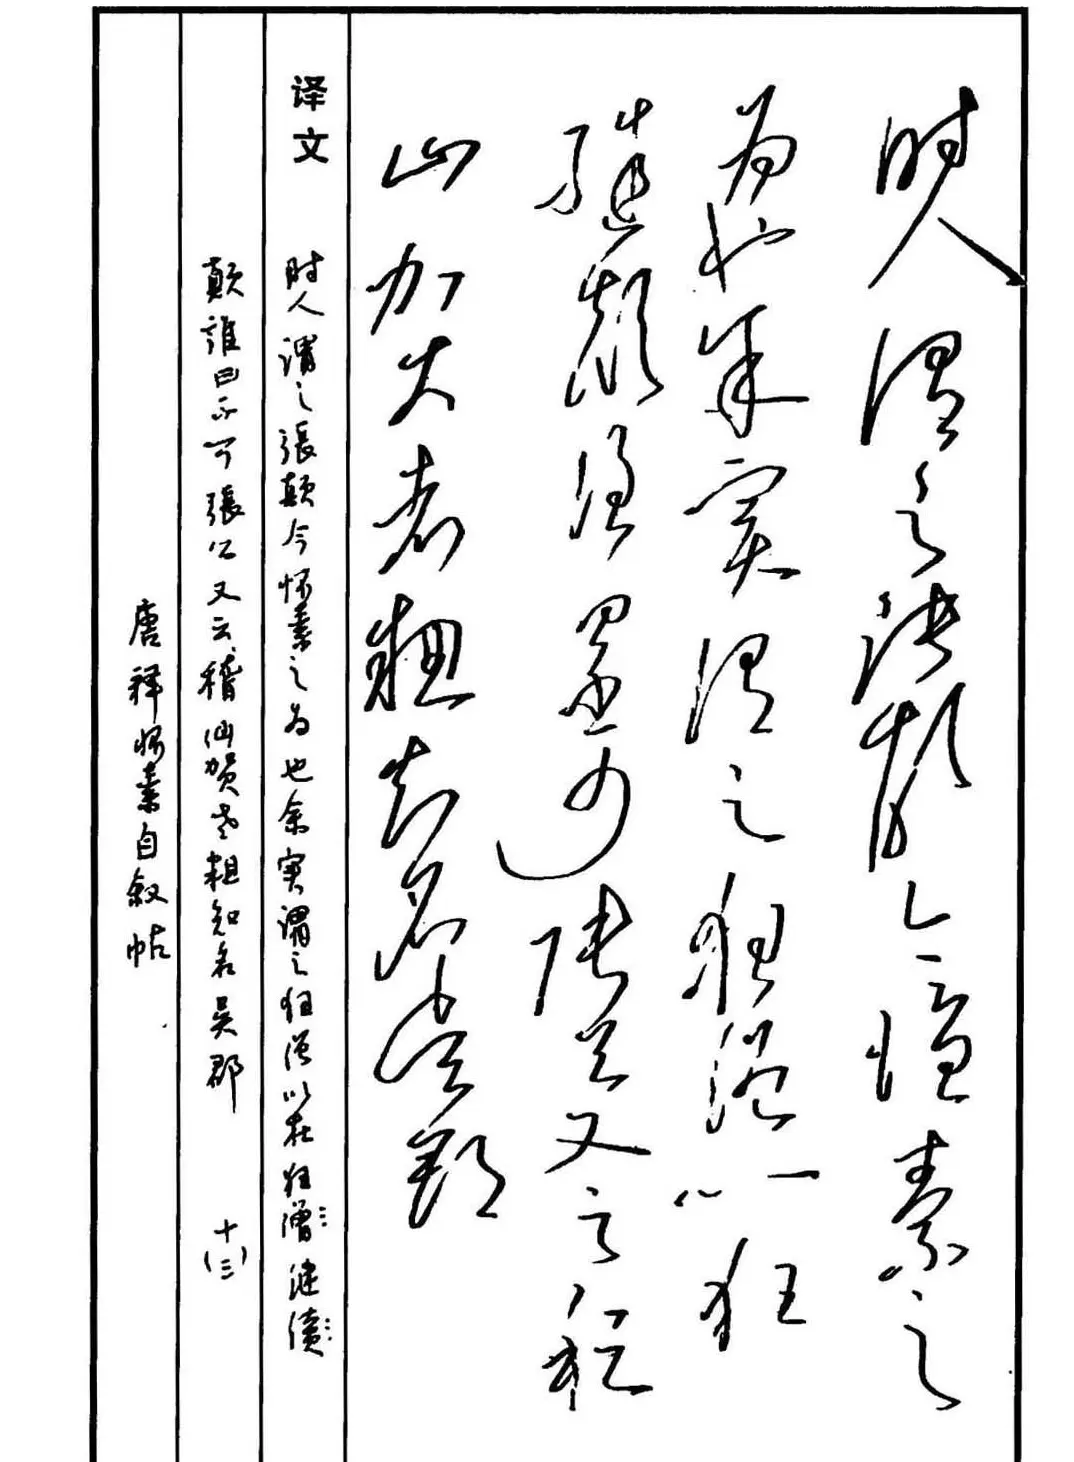 时人谓之张颠今怀素之
为也余实谓之狂僧以狂
继颠谁曰不可张公又云稽
山贺老粗知名吴郡
译文 时人谓之張颠今怀素之为也余实谓之狂僧以在狂僧继续
颠誰曰不可張公又云稽仙贺老粗知名吴郡 十(三)
唐释怀素自叙帖